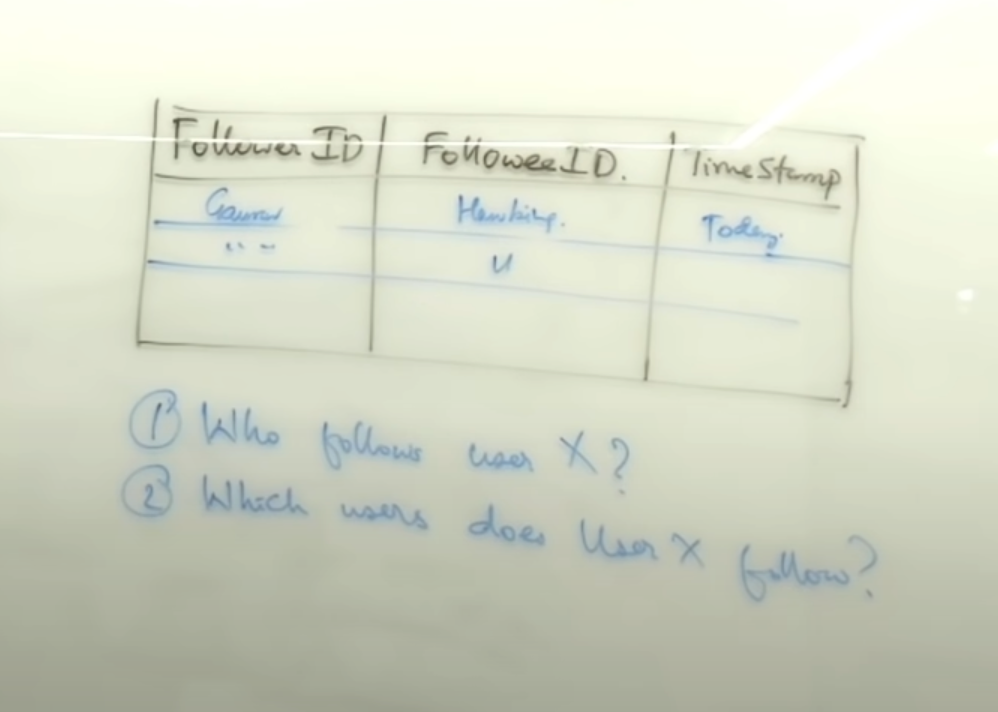 Follower ID Followee ID. TimeStamp
Gaurav Today.
" "
"
① Who follows user X?
② Which users does User X follow?